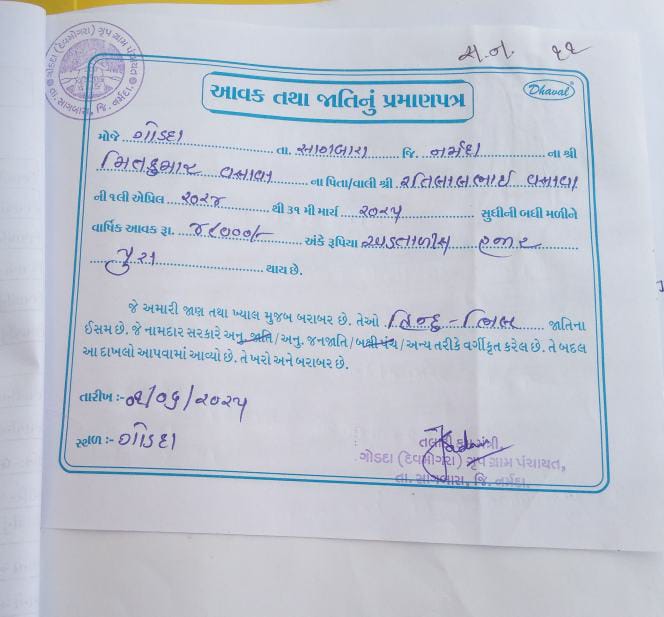 ગોડદા (દેવમોગરા) ગૃપ ગ્રામ પંચાયત
તા. સાગબારા, જિ. નર્મદા
અ.નં. ૨૨
Dhaval
આવક તથા જાતિનું પ્રમાણપત્ર
મોજે ગોડદા તા. સાગબારા જિ. નર્મદા ના શ્રી
મિતકુમાર વસાવા ના પિતા/વાલી શ્રી રતિલાલભાઇ વસાવા
ની ૧લી એપ્રિલ ૨૦૨૪ થી ૩૧ મી માર્ચ ૨૦૨૫ સુધીની બધી મળીને
વાર્ષિક આવક રૂા. ૪૮૦૦૦/- અંકે રૂપિયા અડતાળીસ હજાર
પુરા થાય છે.
જે અમારી જાણ તથા ખ્યાલ મુજબ બરાબર છે. તેઓ હિન્દુ - ભિલ જાતિના
ઈસમ છે. જે નામદાર સરકારે અનુ. જાતિ/અનુ. જનજાતિ/બક્ષીપંચ/અન્ય તરીકે વર્ગીકૃત કરેલ છે. તે બદલ
આ દાખલો આપવામાં આવ્યો છે. તે ખરો અને બરાબર છે.
તારીખ :- ૦૨/૦૬/૨૦૨૫
સ્થળ :- ગોડદા
તલાટી કમ મંત્રી,
ગોડદા (દેવમોગરા) ગૃપ ગ્રામ પંચાયત,
તા. સાગબારા, જિ. નર્મદા.